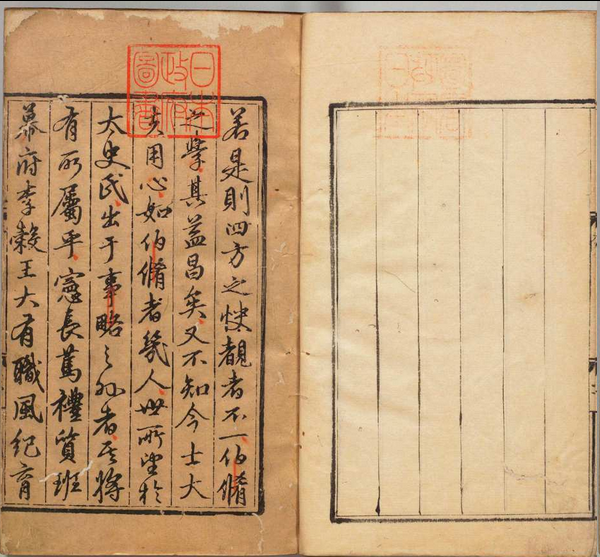 若是則四方之快覩者不一伯脩
之學其益昌矣又不知今士大
夫用心如伯脩者幾人世所望於
太史氏出于事略之外者其將
有所屬乎憲長篤禮質班
幕府李穀王大有職風紀育
日本政府圖書